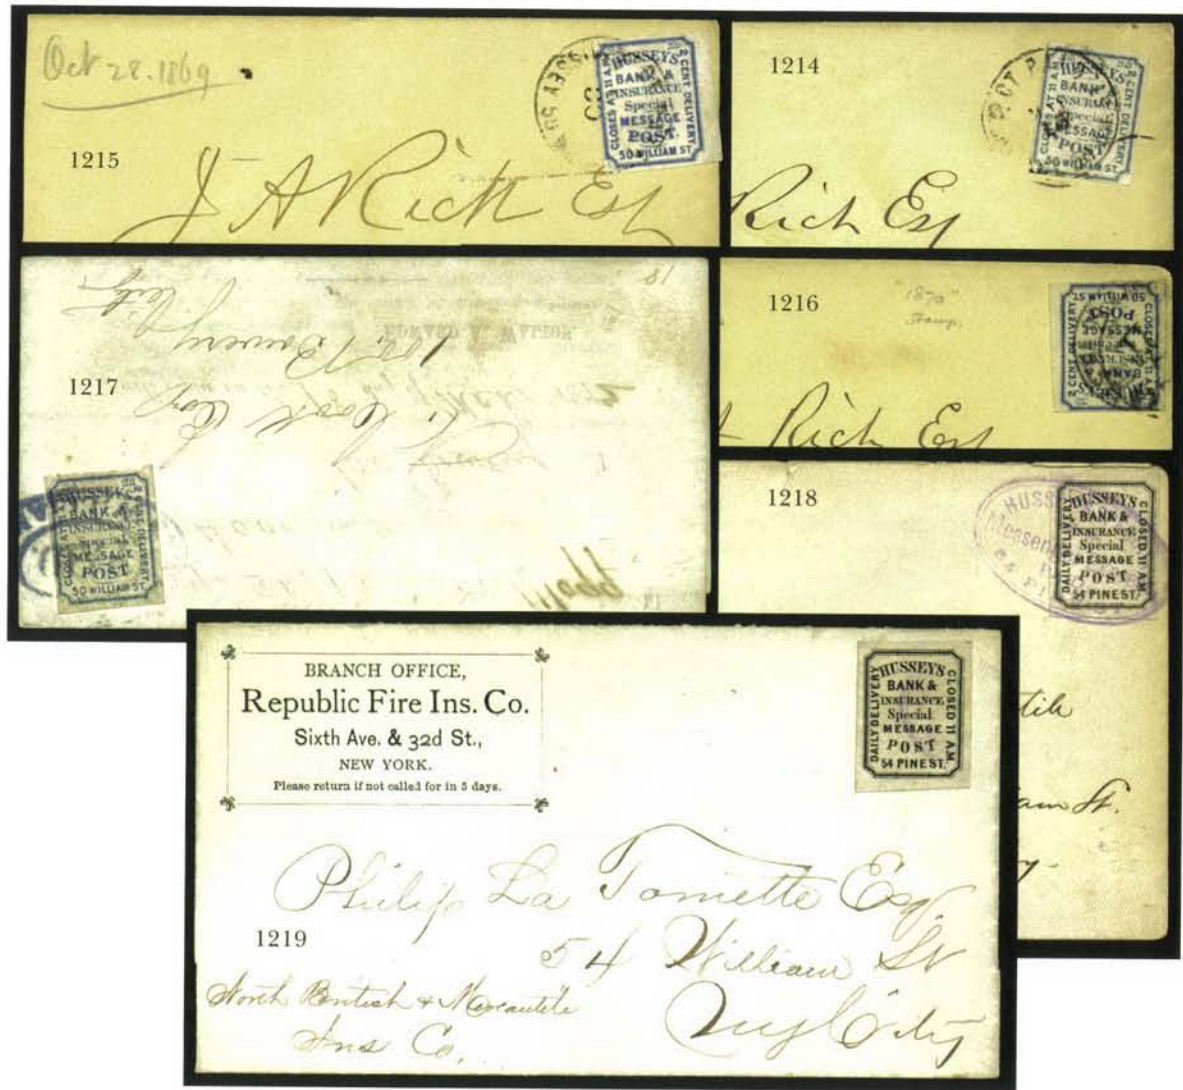 Oct 28. 1869
1215
J A Rich Esq
HUSSEYS
BANK &
INSURANCE
Special
MESSAGE
POST.
50 WILLIAM ST.
CLOSES AT 11 A.M.
2 CENT. DELIVERY.
1214
Rich Esq
HUSSEYS
BANK &
INSURANCE
Special
MESSAGE
POST
50 WILLIAM ST.
CLOSES AT 11 AM
2 CENT. DELIVERY.
1216
"1870"
Stamp.
Rich Esq
HUSSEYS
BANK &
INSURANCE
MESSAGE
POST
50 WILLIAM ST.
CLOSES AT 11 A.M.
2 CENT DELIVERY
1217
Bowery
HUSSEYS
BANK &
INSURANCE
Special
MESSAGE
POST
50 WILLIAM ST.
CLOSES AT 11 AM
2 CENT. DELIVERY.
1218
HUSSEYS
BANK &
INSURANCE
Special
MESSAGE
POST
54 PINE ST.
DAILY DELIVERY
CLOSED 11 AM.
St.
BRANCH OFFICE,
Republic Fire Ins. Co.
Sixth Ave. & 32d St.,
NEW YORK.
Please return if not called for in 5 days.
HUSSEYS
BANK &
INSURANCE
Special
MESSAGE
POST
54 PINE ST.
DAILY DELIVERY
CLOSED 11 AM.
Philip La Tomette Esq.
54 William St
1219
North British & Mercantile
Ins Co.
City